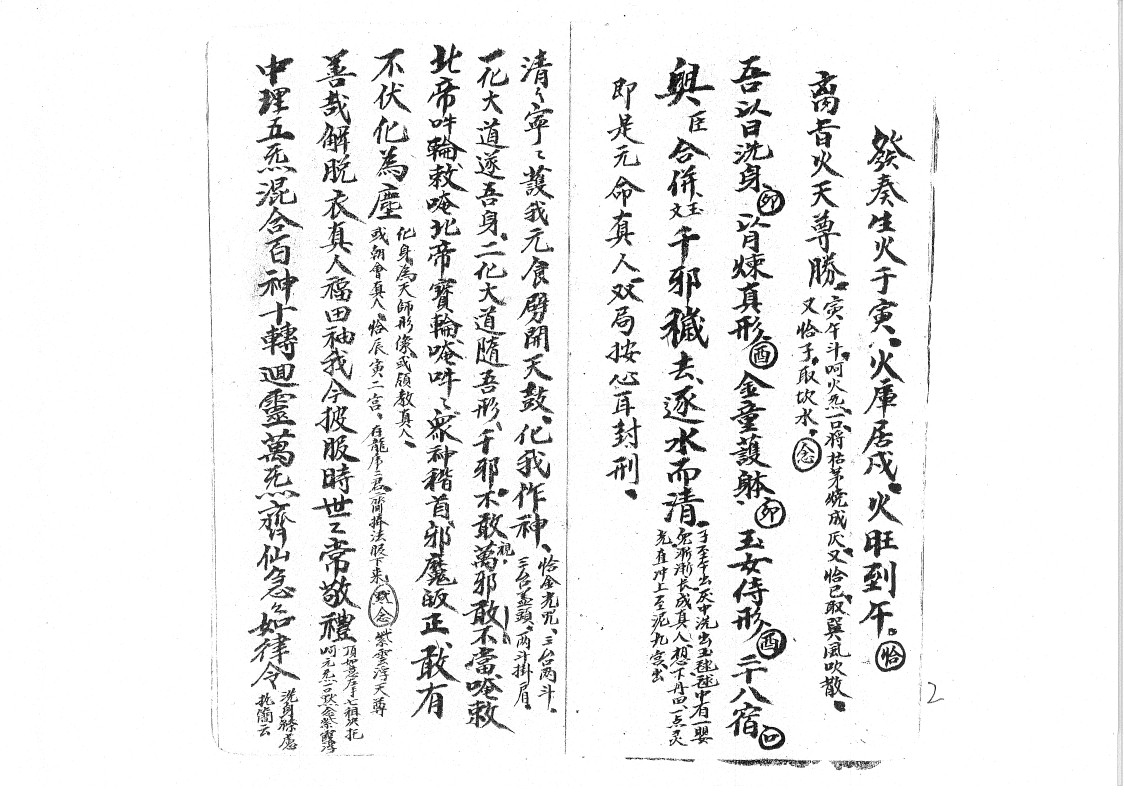 發奏生火于寅、火庫居戌。火旺到午。㊟恰
离旨火天尊勝。寅午斗。呵火炁一口将枯茅燒成灰。又恰巳取巽風吹散。
又恰子。取坎水。念
吾以日洗身卯以月煉真形。酉金童護躰。卯玉女侍形酉二十八宿
與、匡合併、玉文千邪穢去、逐水而清。子至午出灰中洗出玉毬毬中有一嬰
兒漸漸長成真人。想下丹田一点灵
光直冲上至泥丸宮出
即是元命真人。双局按心耳封刑。
清々寧々護我元食劈開天鼓、化我作神、恰金光咒、三台两斗。
三台蓋頭。两斗掛肩。
一化大道遂吾身。二化大道隨吾形、千邪不敢視。萬邪敢不當唵敕
北帝吽輪敕唵北帝寶輪唵吽々眾神稽首邪魔皈正、敢有
不伏化為塵化身為天師形像或領教真人、
或朝會真人。恰辰寅二宮。在龍虎二君一齊擠法服下来。默念紫雲浮天尊
善哉解脱衣真人福田袖我今披服時世々常敬禮頂如意左手七祖訣托
呵元炁一口默念紫霄浮
中理五炁混合百神十轉迴靈萬炁齊仙急々如律令洗身穌憲
执簡云
2